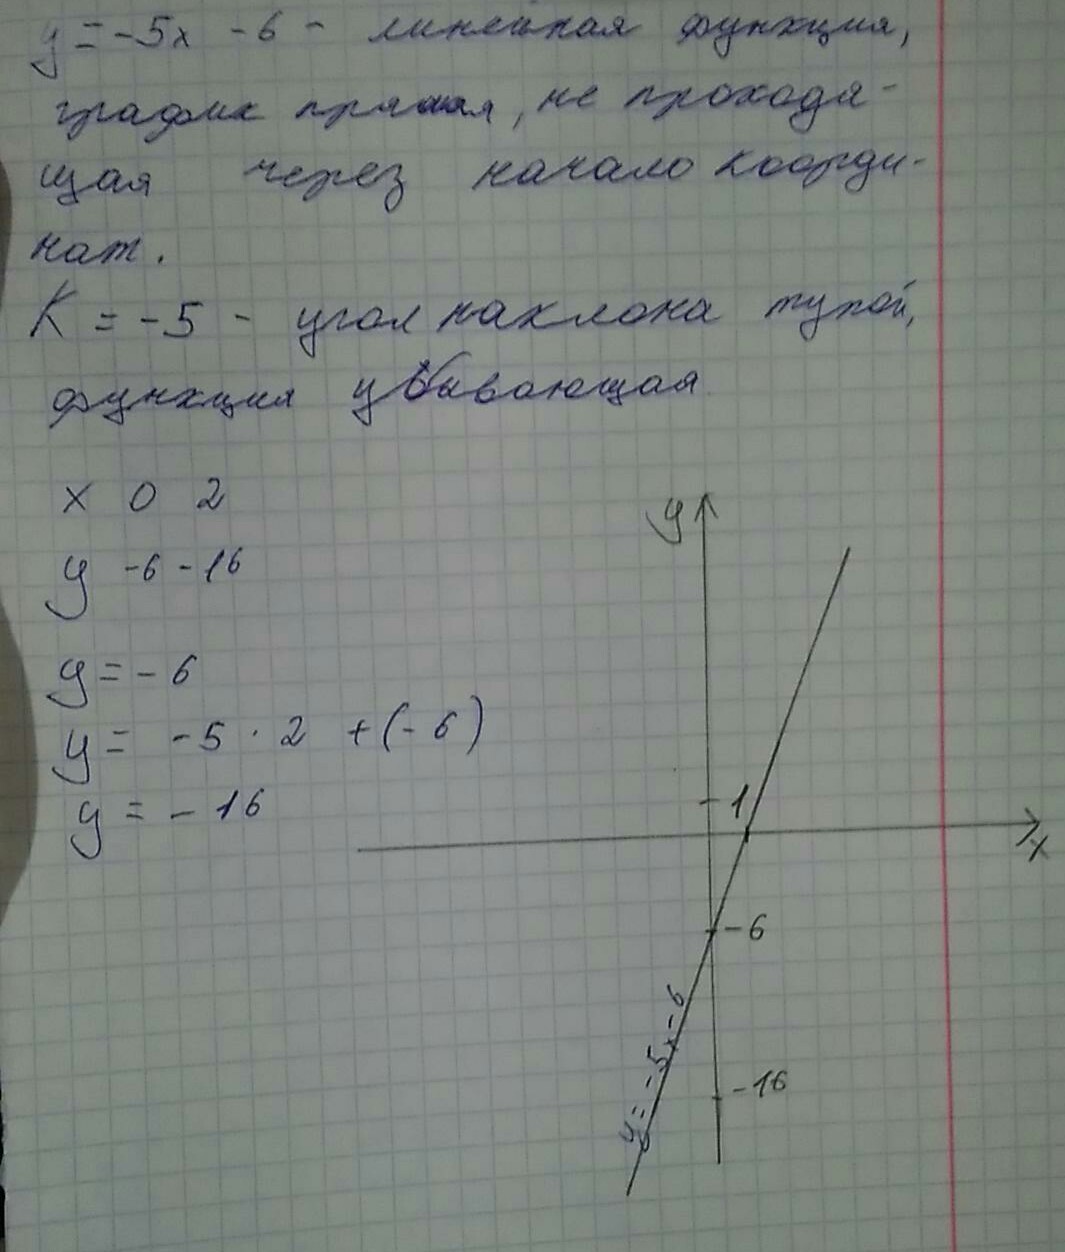 y = -5x - 6 - линейная функция,
график прямая, не проходя-
щая через начало коорди-
нат.
K = -5 - угол наклона тупой,
функция убывающая
x 0 2
y -6 -16
y = - 6
y = -5 · 2 + (- 6)
y = - 16
y
1
x
-6
y = -5x - 6
-16